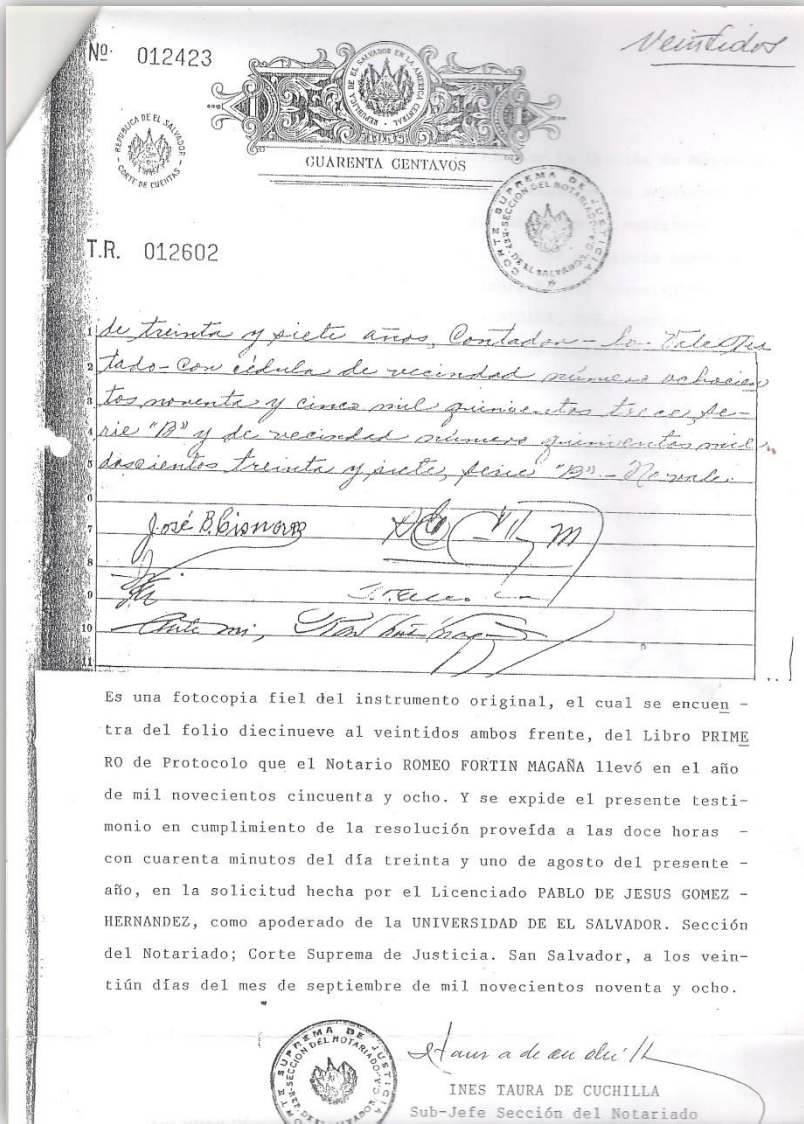 Nº 012423
Veintidos
REPUBLICA DE EL SALVADOR EN LA AMERICA CENTRAL
REPUBLICA DE EL SALVADOR
CORTE DE CUENTAS
CUARENTA CENTAVOS
CORTE SUPREMA DE JUSTICIA
SECCION DEL NOTARIADO
REP. DE EL SALVADOR, C.A.
T.R. 012602
1 de treinta y siete años, Contador - lo - Vale Tes
2 tado - Con cédula de vecindad número ochocien
3 tos noventa y cinco mil quinientos trece, Se-
4 rie "B" y de vecindad número quinientos mil
5 doscientos treinta y siete, serie "B" - No vale.
6
7 José B. Cisneros
8
9
10 Ante mi,
11
Es una fotocopia fiel del instrumento original, el cual se encuen -
tra del folio diecinueve al veintidos ambos frente, del Libro PRIME
RO de Protocolo que el Notario ROMEO FORTIN MAGAÑA llevó en el año
de mil novecientos cincuenta y ocho. Y se expide el presente testi-
monio en cumplimiento de la resolución proveída a las doce horas -
con cuarenta minutos del día treinta y uno de agosto del presente -
año, en la solicitud hecha por el Licenciado PABLO DE JESUS GOMEZ -
HERNANDEZ, como apoderado de la UNIVERSIDAD DE EL SALVADOR. Sección
del Notariado; Corte Suprema de Justicia. San Salvador, a los vein-
tiún días del mes de septiembre de mil novecientos noventa y ocho.
CORTE SUPREMA DE JUSTICIA
SECCION DEL NOTARIADO
REP. DE EL SALVADOR, C.A.
INES TAURA DE CUCHILLA
Sub-Jefe Sección del Notariado